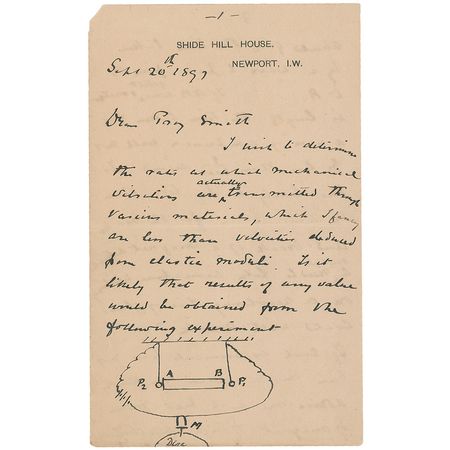 — 1 —
SHIDE HILL HOUSE.
NEWPORT, I.W.
Sept 20th 1897
Dear
I wish to determine
the rates at which mechanical
actually
vibrations are transmitted through
various materials, which I fancy
are less than velocities deduced
from elastic moduli. Is it
likely that results of any value
would be obtained from the
following experiment
P2 A B P1
M